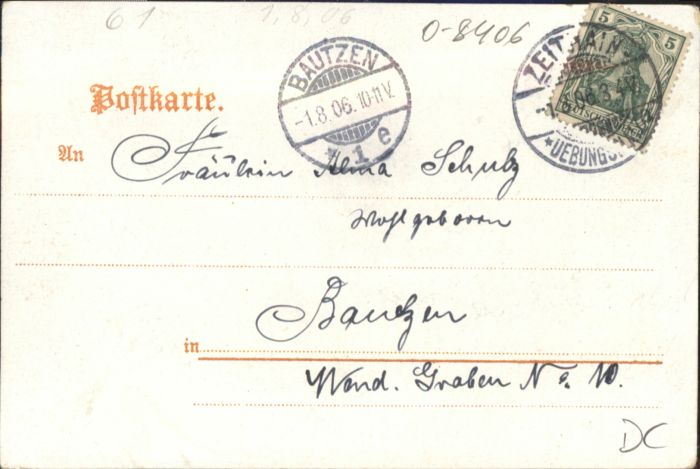 61
1,8,06
0-8406
BAUTZEN
-1.8.06.10-11V.
1 e
ZEITHAIN
UEBUNGS
5 5
Postkarte.
An Fräulein Alma Schulz
Wohlgeboren
in Bautzen
Wend. Graben No. 10.
DC